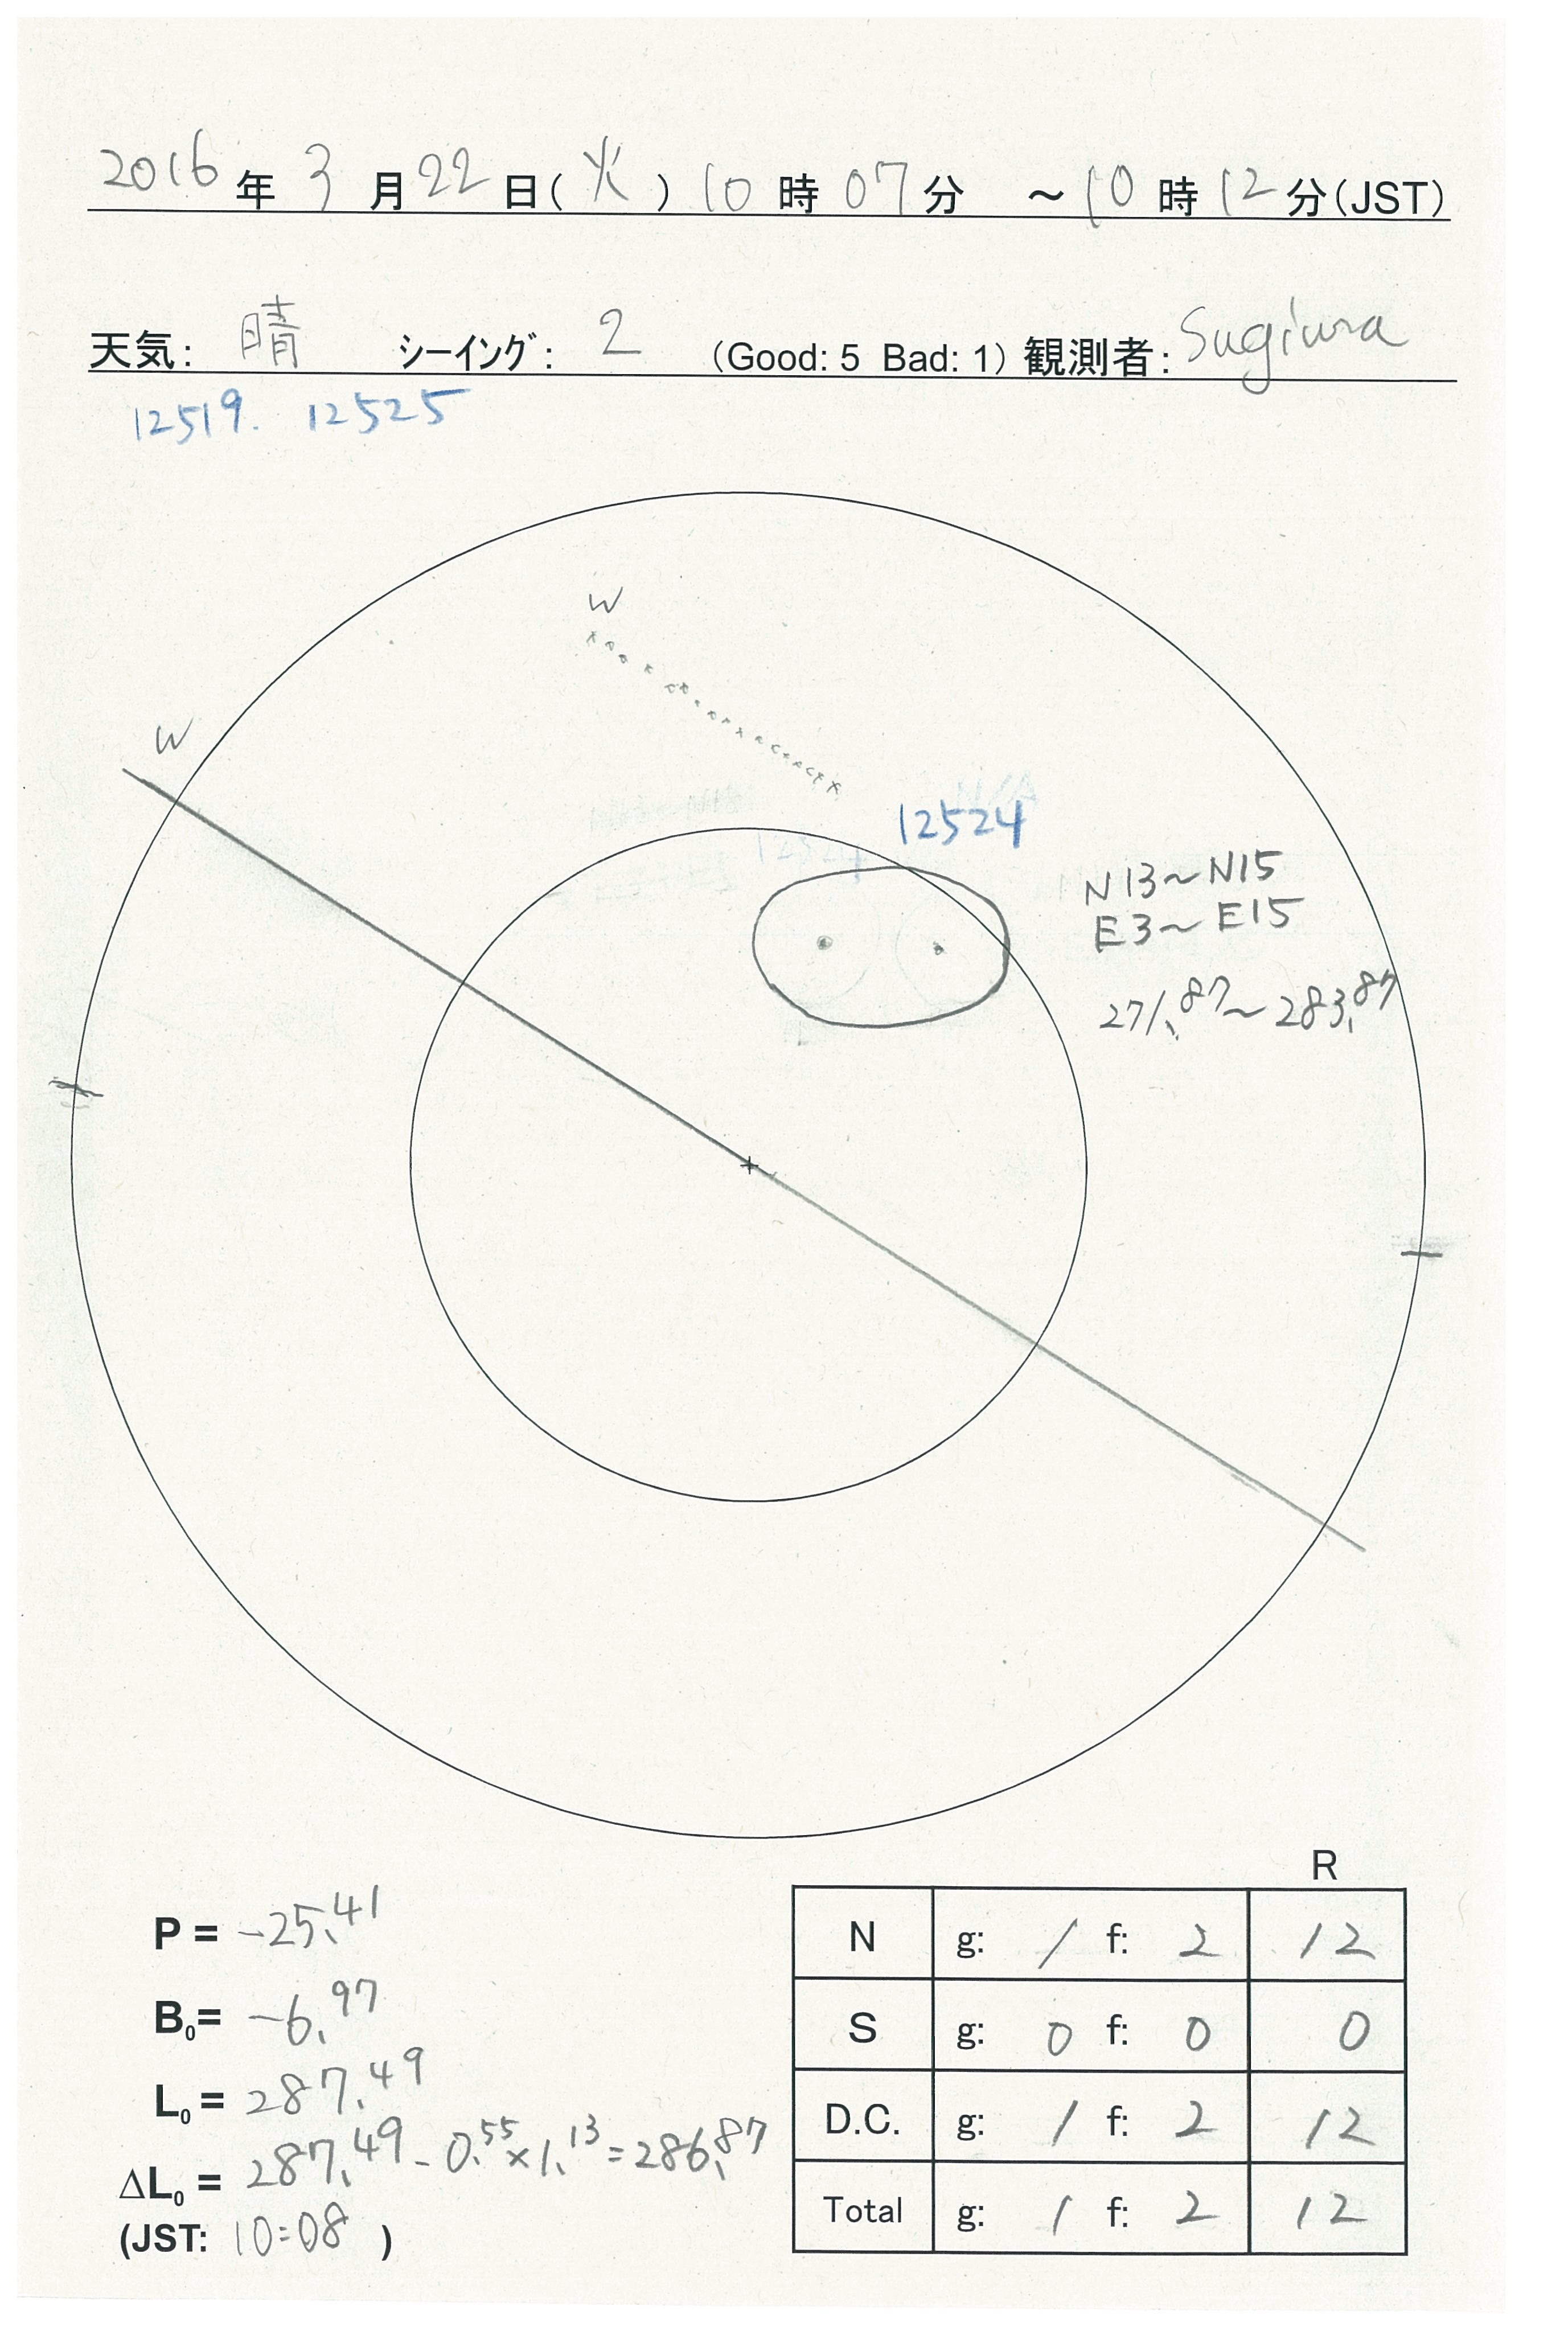 2016年3月22日(火)10時07分 ~10時12分(JST)
天気: 晴 シーイング: 2 (Good: 5 Bad: 1) 観測者: Sugiura
12519. 12525
W
W
12524
N13~N15
E3~E15
271.87~283.87
P = -25.41
B0= -6.97
L0 = 287.49
ΔL0 = 287.49 - 0.55×1.13=286.87
(JST: 10:08 )
R
N g: 1 f: 2 12
S g: 0 f: 0 0
D.C. g: 1 f: 2 12
Total g: 1 f: 2 12